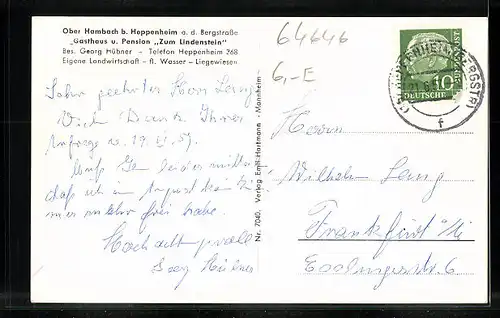 Ober Hambach b. Heppenheim a. d. Bergstraße
Gasthaus u. Pension „Zum Lindenstein"
Bes. Georg Hübner - Telefon Heppenheim 268
Eigene Landwirtschaft - fl. Wasser - Liegewiesen
64646
6,-E
Sehr geehrter Herr Lang
Vielen Dank Ihrer
Anfrage v. 19.VI.57.
muß Ihnen leider mitteilen
daß ich im August kein Zi
mer mehr frei habe.
Hochachtungsvoll
Georg Hübner
Nr. 7040. Verlag Emil Hartmann - Mannheim -
10
DEUTSCHE
BUNDESPOST
(BERGSTR)
f
Herrn
Wilhelm Lang
Frankfurt a/M